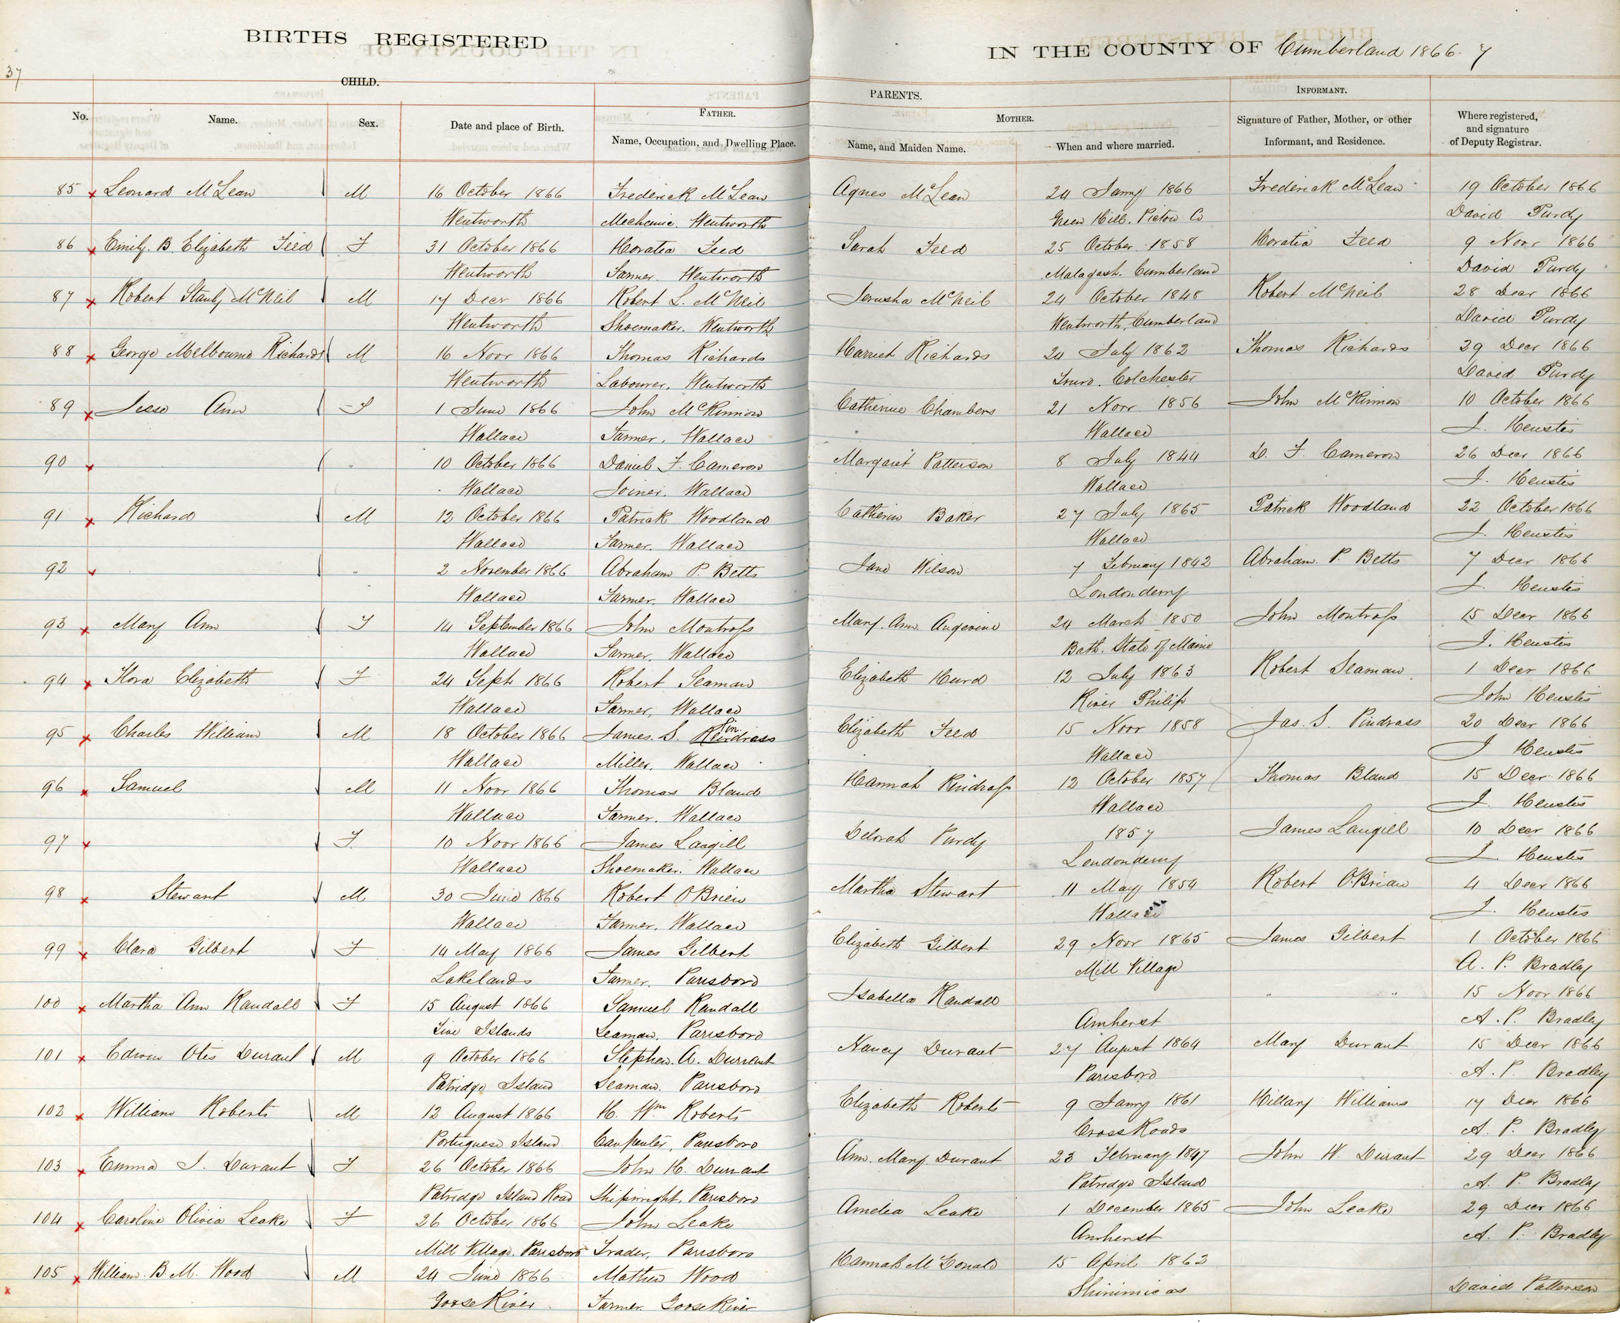 BIRTHS REGISTERED IN THE COUNTY OF Cumberland 1866. 7
37
CHILD. PARENTS. INFORMANT.
No. Name. Sex. Date and place of Birth. FATHER. Name, Occupation, and Dwelling Place. MOTHER. Name, and Maiden Name. When and where married. Signature of Father, Mother, or other Informant, and Residence. Where registered, and signature of Deputy Registrar.
85 Leonard McLean M 16 October 1866 Frederick McLean Agnes McLean 24 Jany 1866 Frederick McLean 19 October 1866
Wentworth Mechanic. Wentworth Green Hill. Pictou Co David Purdy
86 Emily B. Elizabeth Teed F 31 October 1866 Horatia Teed Sarah Teed 25 October 1858 Horatia Teed 9 Novr 1866
Wentworth Farmer. Wentworth Malagash. Cumberland David Purdy
87 Robert Stanly McNeil M 17 Decr 1866 Robert L. McNeil Jerusha McNeil 24 October 1848 Robert McNeil 28 Decr 1866
Wentworth Shoemaker. Wentworth Wentworth, Cumberland David Purdy
88 George Melbourne Richards M 16 Novr 1866 Thomas Richards Harriet Richards 20 July 1862 Thomas Richards 29 Decr 1866
Wentworth Labourer, Wentworth Truro. Colchester David Purdy
89 Jese Ann F 1 June 1866 John McKinnon Catherine Chambers 21 Novr 1856 John McKinnon 10 October 1866
Wallace Farmer, Wallace Wallace J. Heustis
90 10 October 1866 Daniel F. Cameron Margaret Patterson 8 July 1844 D. F. Cameron 26 Decr 1866
Wallace Joiner. Wallace Wallace J. Heustis
91 Richard M 12 October 1866 Patrick Woodland Catherin Baker 27 July 1865 Patrick Woodland 22 October 1866
Wallace Farmer. Wallace Wallace J. Heustis
92 2 November 1866 Abraham P. Betts Jane Wilson 7 February 1842 Abraham. P. Betts 7 Decr 1866
Wallace Farmer. Wallace Londonderry J. Heustis
93 Mary Ann F 14 September 1866 John Montross Mary. Ann Angevine 24 March 1850 John Montross 15 Decr 1866
Wallace Farmer. Wallace Bath. State of Maine J. Heustis
94 Flora Elizabeth F 24 Sept 1866 Robert Seaman Elizabeth Hurd 12 July 1863 Robert Seaman 1 Decr 1866
Wallace Farmer, Wallace River Philip John Heustis
95 Charles William M 18 October 1866 James. S. Pindress Elizabeth Teed 15 Novr 1858 Jas. S. Pindress 20 Decr 1866
Wallace Miller. Wallace Wallace J Heustis
96 Samuel M 11 Novr 1866 Thomas Bland Hannah Pindross 12 October 1857 Thomas Bland 15 Decr 1866
Wallace Farmer. Wallace Wallace J. Heustis
97 F. 10 Novr 1866 James Langill Deborah Purdy 1857 James Langill 10 Decr 1866
Wallace Shoemaker. Wallace Londonderry J. Heustis
98 Stewart M 30 June 1866 Robert O'Brien Martha Stewart 11 May 1854 Robert O'Brian 4 Decr 1866
Wallace Farmer. Wallace Wallace J. Heustis
99 Clara Gilbert F 14 May 1866 James Gilbert Elizabeth Gilbert 29 Novr 1865 James Gilbert 1 October 1866
Lakelands Farmer. Parsboro Mill Village A. P. Bradley
100 Martha Ann Randall F 15 August 1866 Samuel Randall Isabella Randall 15 Novr 1866
Five Islands Seaman, Parsboro Amherst A. P. Bradley
101 Edwin Otis Durant M 9 October 1866 Stephen. A. Durrant Nancy Durant 27 August 1864 Mary Durant 15 Decr 1866
Patridge Island Seaman. Parsboro Parsboro A. P. Bradley
102 William Roberts M 12 August 1866 H. Wm Roberts Elizabeth Roberts 9 Jany 1861 Hillary Williams 17 Decr 1866
Portuguese Island Carpenter, Parsboro Cross Roads A. P. Bradley
103 Emma J. Durant F 26 October 1866 John H. Durrant Ann. Mary Durant 23 February 1847 John W Durant 29 Decr 1866
Patridge Island Road Shipwright. Parsboro Patridge Island A. P. Bradley
104 Caroline Olivia Leake F 26 October 1866 John Leake Amelia Leake 1 December 1865 John Leake 29 Decr 1866
Mill Village. Parsboro Trader, Parsboro Amherst A. P. Bradley
105 William. B. M. Wood M 24 June 1866 Mathew Wood Hannah McDonald 15 April 1862
Goose River Farmer Goose River Shinimicas David Patterson